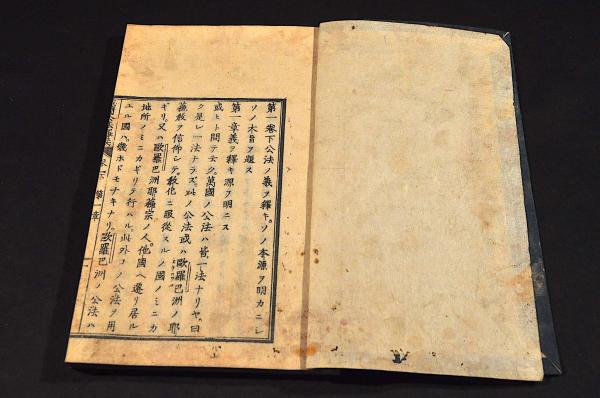 第一卷下公法ノ義ヲ釋キ。ソノ本源ヲ明カニシ
ソノ大旨ヲ題ス
第一章義ヲ釋キ源ヲ明ニス
或ヒト問テ云ク。萬國ノ公法ハ皆一法ナリヤ。曰
ク是レ一法ナラズ。此ノ公法或ハ歐羅巴洲ノ耶
蘇教ヲ信仰シテ。教化ニ服從スルノ國ノミニカ
ギリ。又ハ歐羅巴洲耶蘇宗ノ人。他國ヘ遷リ居ル
地所ノミニカギリテ行ハル。此外コノ公法ヲ用
ユル國ハ。幾ホドモナキナリ。歐羅巴洲ノ公法ハ
卷下 第一章